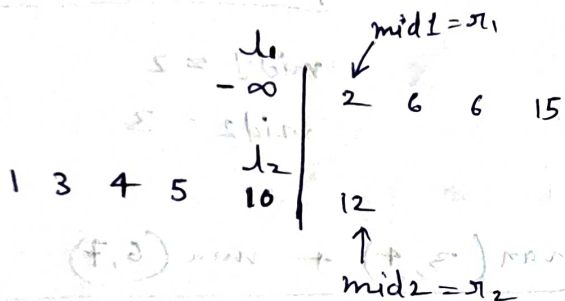 mid1 = r₁
l₁
-∞ | 2 6 6 15
l₂
1 3 4 5 10 | 12
mid2 = r₂